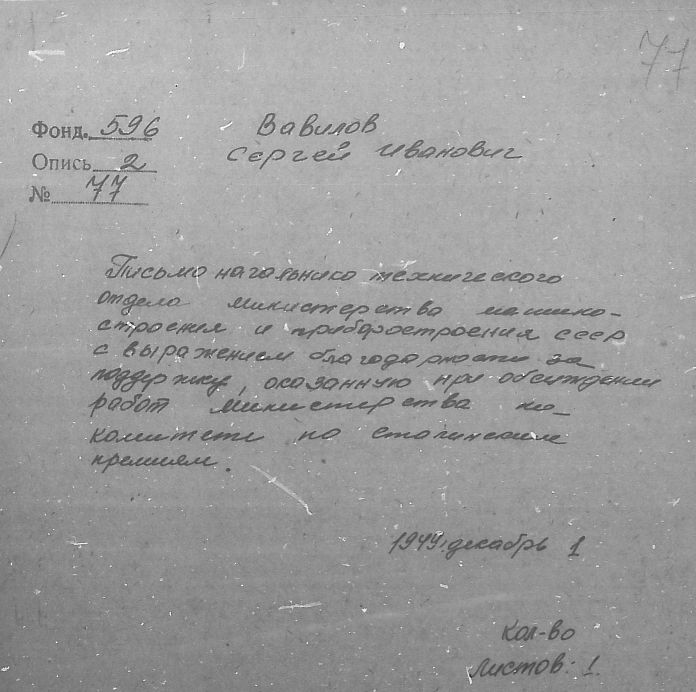 77
Фонд. 596
Опись 2
№ 77
Вавилов
Сергей Иванович
Письмо начальника технического
отдела министерства машино-
строения и приборостроения СССР
с выражением благодарности за
поддержку, оказанную при обсуждении
работ министерства на
комитете по сталинским
премиям.
1949, декабрь 1
Кол-во
листов: 1.